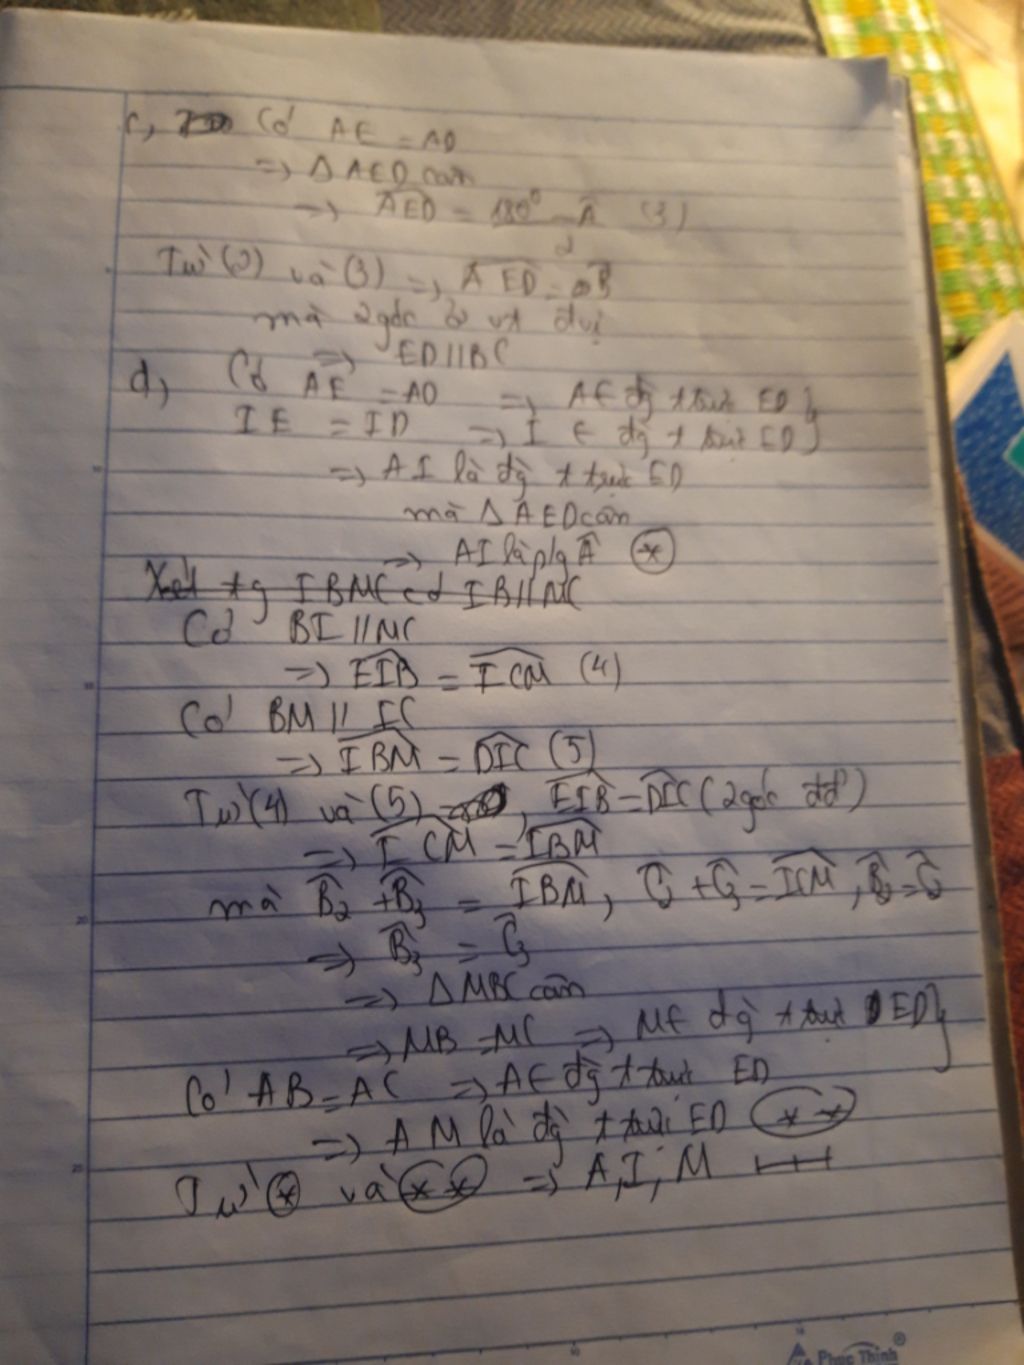 c, Có AE = AD
=> Δ AED cân
=> AED = 180° - A / 2 (3)
Từ (2) và (3) => AED = B
mà 2 góc ở vt đvị
=> ED // BC
d, Có AE = AD => A ∈ đg t trực ED }
IE = ID => I ∈ đg t trực ED }
=> AI là đg t trực ED
mà Δ AED cân
=> AI là p/g Â (*)
Xét tg IBMC có IB // MC
Có BI // MC
=> EIB = ICM (4)
Có BM // IC
=> IBM = DIC (5)
Từ (4) và (5), EIB = DIC (2 góc đđ)
=> ICM = IBM
mà B₂ + B₃ = IBM, C₂ + C₃ = ICM, B₂ = C₂
=> B₃ = C₃
=> Δ MBC cân
=> MB = MC => M ∈ đg t trực ED }
Có AB = AC => A ∈ đg t trực ED
=> AM là đg t trực ED (**)
Từ (*) và (**) => A, I, M
Phúc Thịnh ®